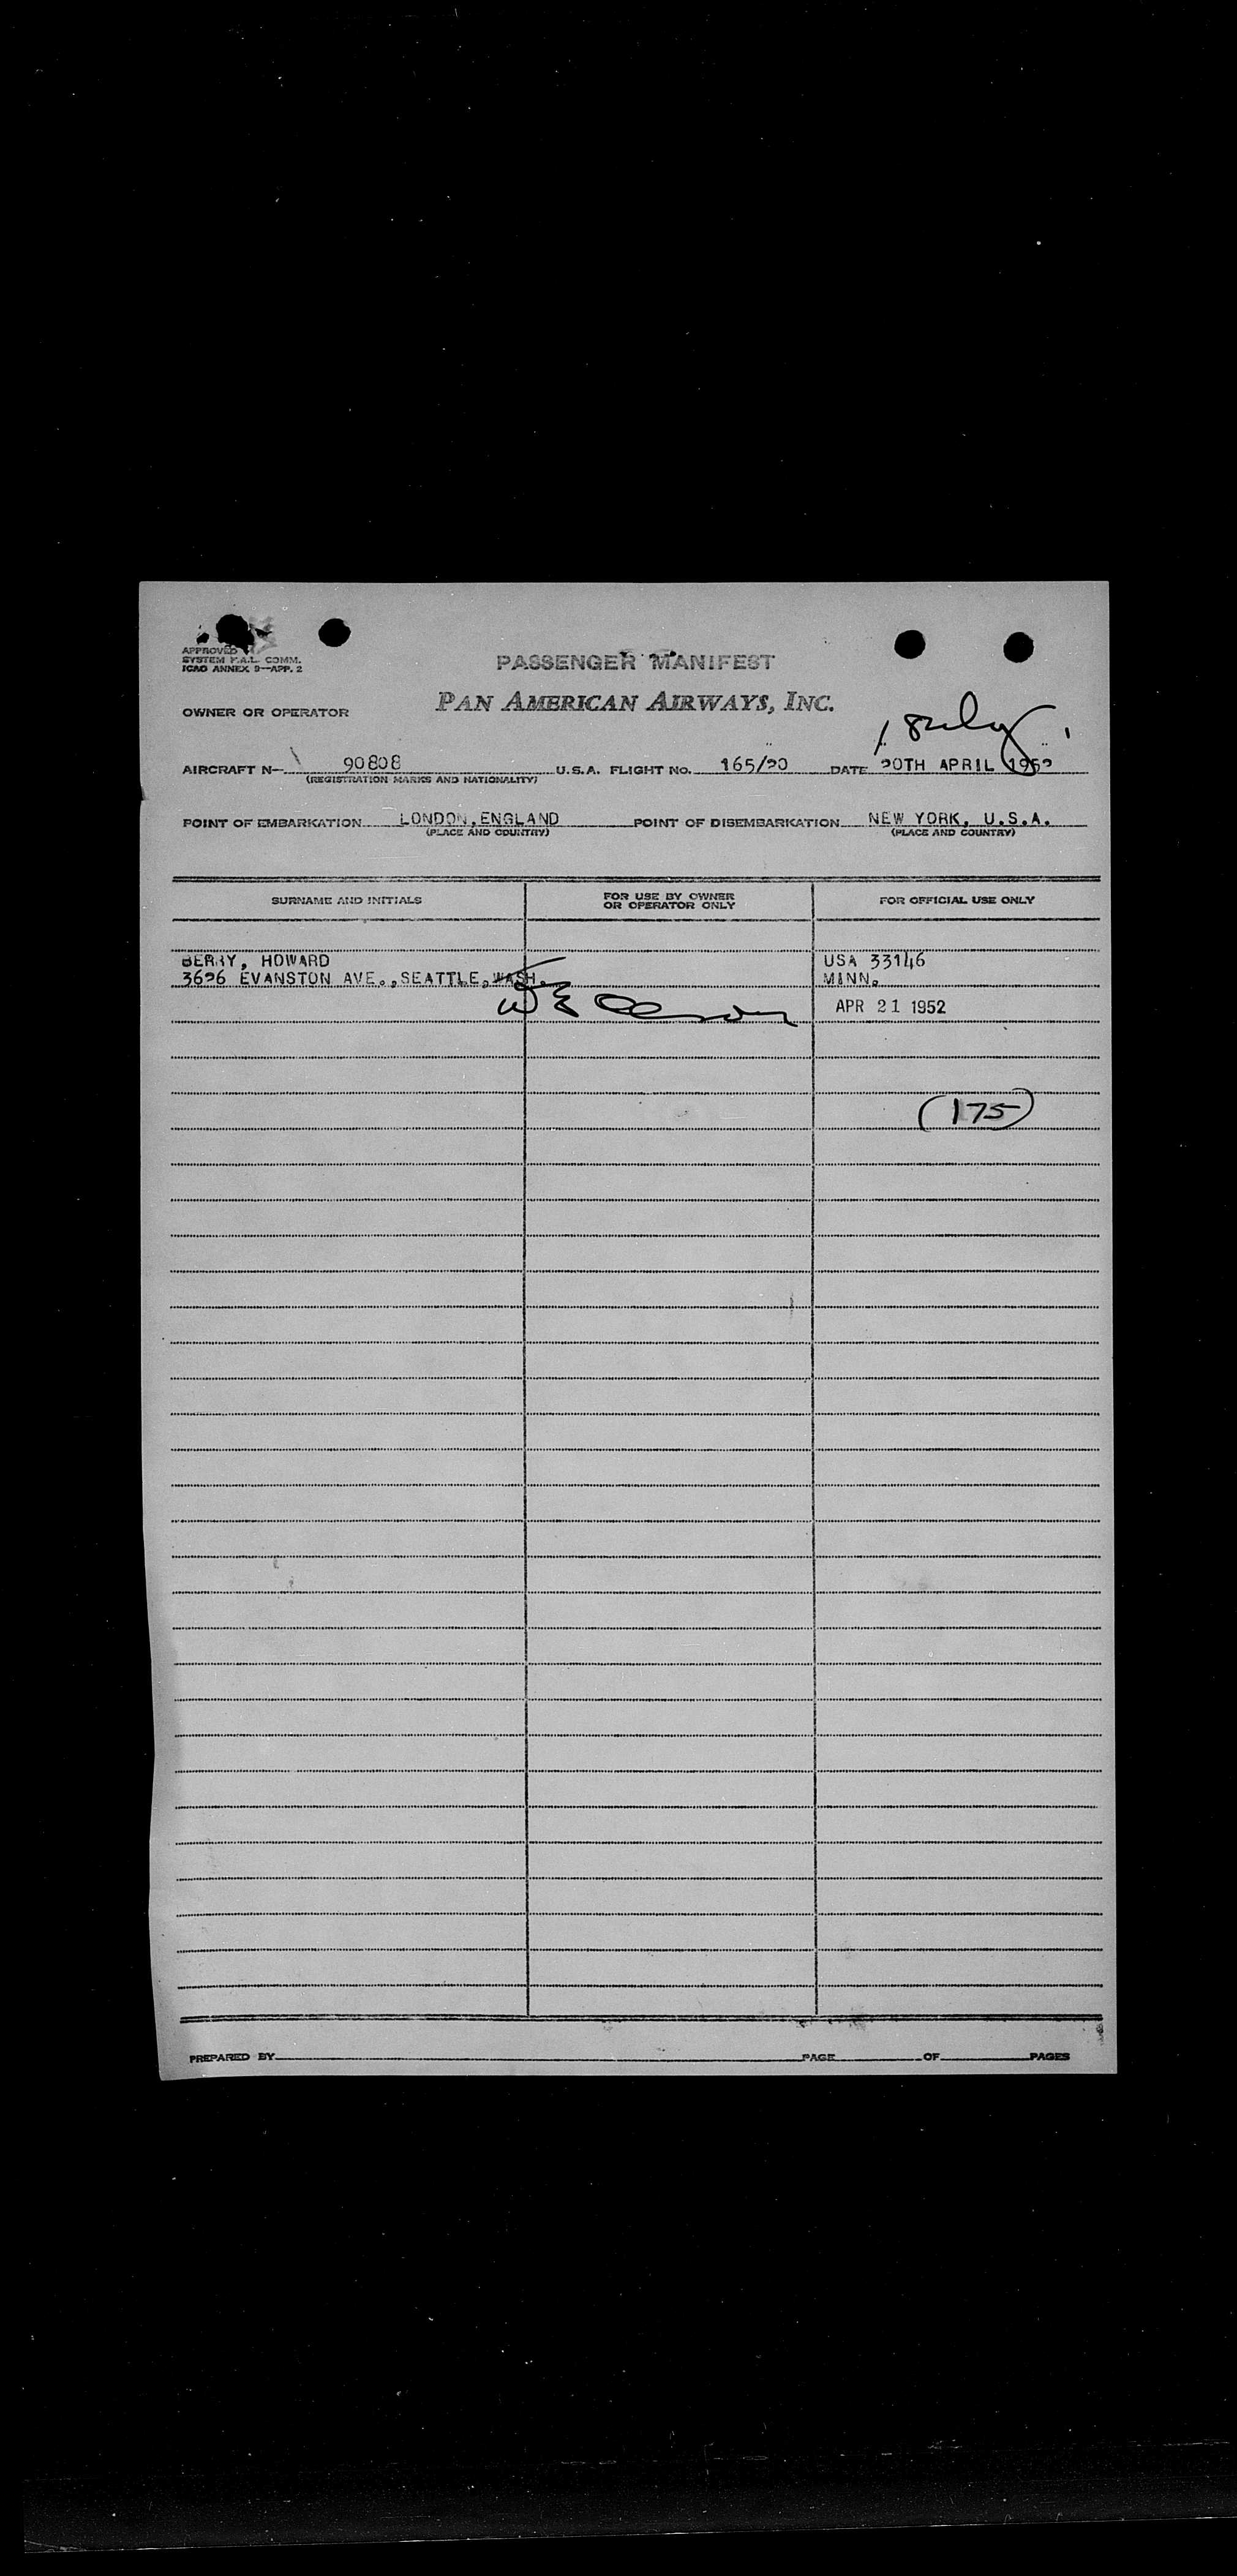 APPROVED
SYSTEM F.A.L. COMM.
ICAO ANNEX 9—APP. 2
PASSENGER MANIFEST
OWNER OR OPERATOR PAN AMERICAN AIRWAYS, INC.
AIRCRAFT N— 90808 U.S.A. FLIGHT NO. 165/20 DATE 20TH APRIL 1952
(REGISTRATION MARKS AND NATIONALITY)
POINT OF EMBARKATION LONDON, ENGLAND POINT OF DISEMBARKATION NEW YORK, U.S.A.
(PLACE AND COUNTRY) (PLACE AND COUNTRY)
SURNAME AND INITIALS FOR USE BY OWNER OR OPERATOR ONLY FOR OFFICIAL USE ONLY
BERRY, HOWARD USA 33146
3626 EVANSTON AVE., SEATTLE, WASH. MINN.
APR 21 1952
(175)
PREPARED BY PAGE OF PAGES